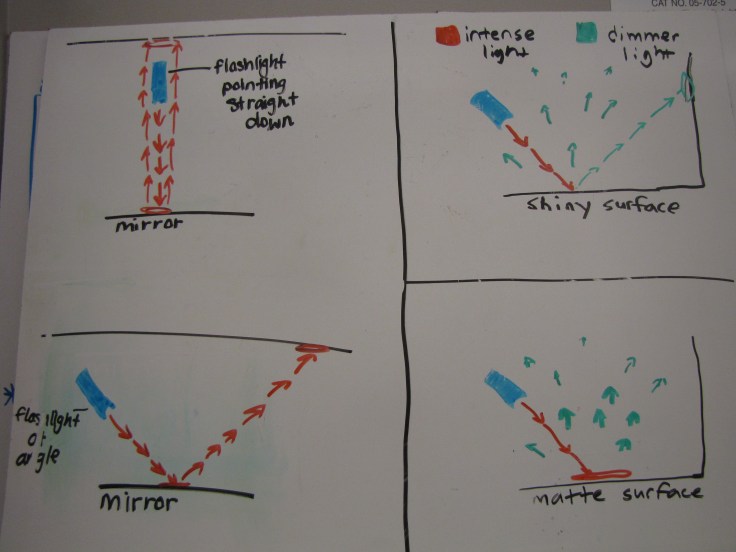 CAT NO. 05-702-5
flashlight
pointing
straight
down
mirror
intense
light
dimmer
light
shiny surface
flashlight
at
angle
mirror
matte surface